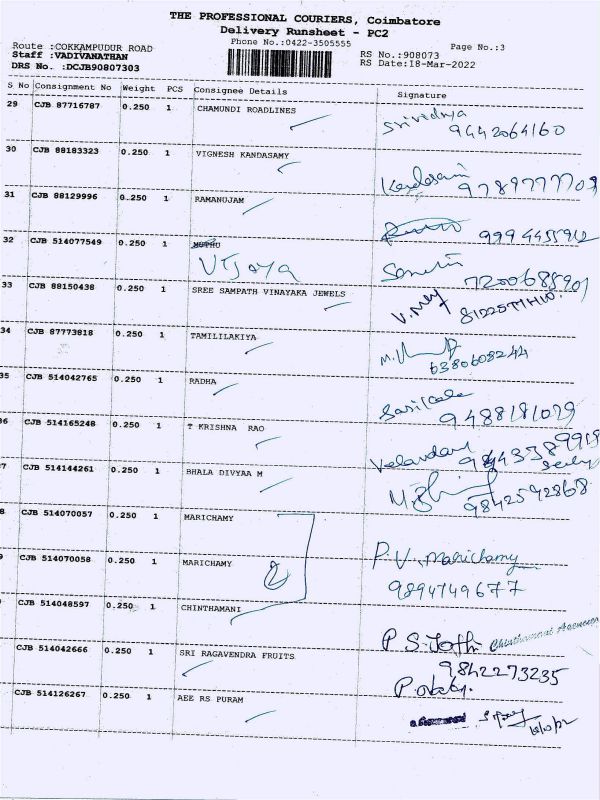 THE PROFESSIONAL COURIERS, Coimbatore
Delivery Runsheet - PC2
Phone No.:0422-3505555
Page No.:3
Route :COKKAMPUDUR ROAD
Staff :VADIVANATHAN
DRS No. :DCJB90807303
RS No.:908073
RS Date:18-Mar-2022
S No Consignment No Weight PCS Consignee Details Signature
29 CJB 87716787 0.250 1 CHAMUNDI ROADLINES Srividhya
9442064160
30 CJB 88183323 0.250 1 VIGNESH KANDASAMY
31 CJB 88129996 0.250 1 RAMANUJAM
9994455912
32 CJB 514077549 0.250 1 MUTHU
Vijaya
7200688901
33 CJB 88150438 0.250 1 SREE SAMPATH VINAYAKA JEWELS
34 CJB 87773818 0.250 1 TAMILILAKIYA
6380608244
35 CJB 514042765 0.250 1 RADHA Sasikala
9488181079
36 CJB 514165248 0.250 1 T KRISHNA RAO
7 CJB 514144261 0.250 1 BHALA DIVYAA M
9842592868
8 CJB 514070057 0.250 1 MARICHAMY
P.V. Marichamy
9 CJB 514070058 0.250 1 MARICHAMY
2
9894749677
CJB 514048597 0.250 1 CHINTHAMANI
CJB 514042666 0.250 1 SRI RAGAVENDRA FRUITS
9842273235
CJB 514126267 0.250 1 AEE RS PURAM